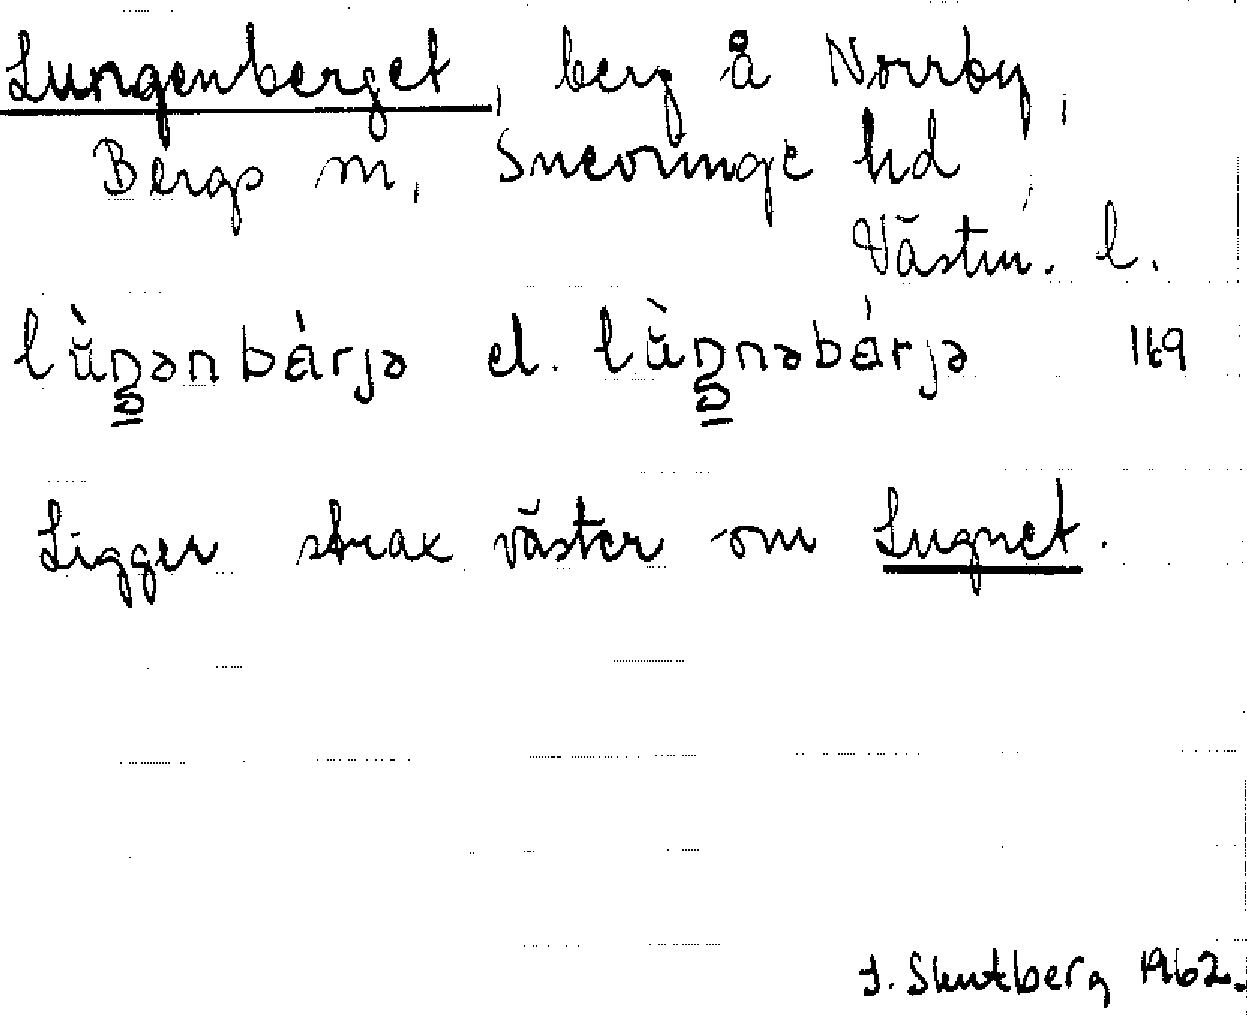 Lungenberget, berg å Norrby,
Bergs sn, Snevringe hd,
Västm. l.
lùŋənbárjə el. lùŋnəbárjə 169
Ligger strax väster om Lugnet.
J. Skutberg 1962.